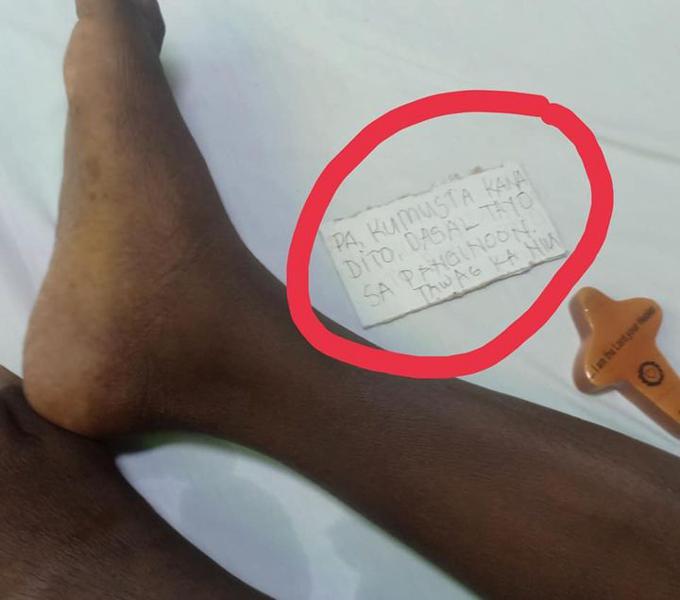 PA, KUMUSTA KANA
DITO, DASAL TAYO
SA PANGINOON.
TAWAG KA
I am the Lord your Healer